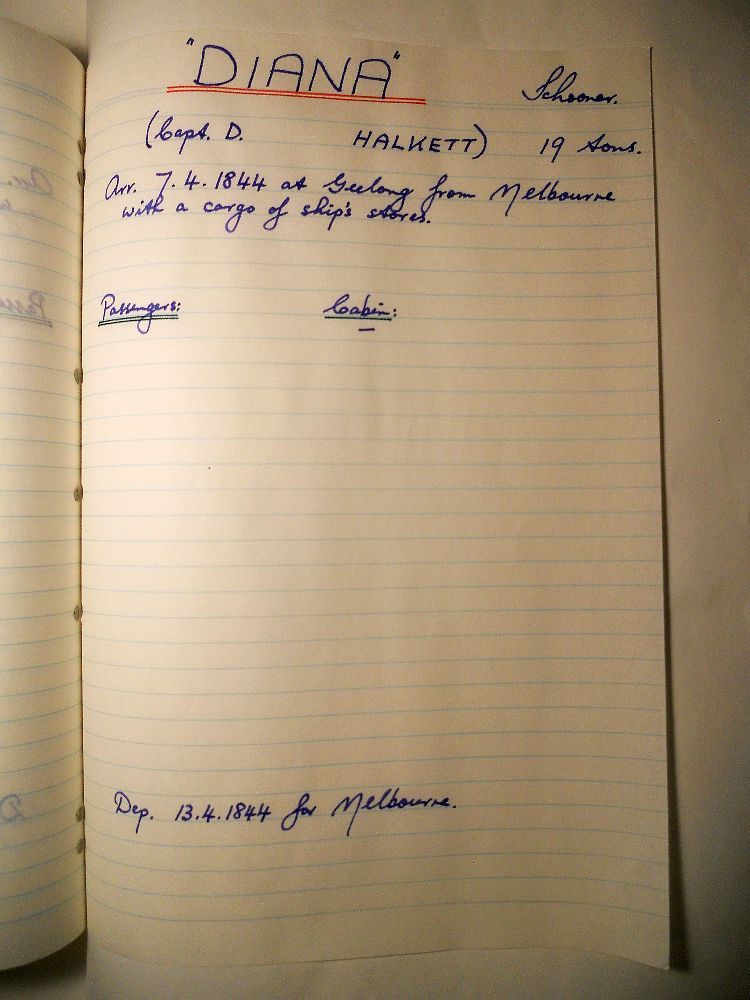 "DIANA" Schooner.
(Capt. D. HALKETT) 19 tons.
Arr. 7.4.1844 at Geelong from Melbourne
with a cargo of ship's stores.
Passengers: Cabin:
—
Dep. 13.4.1844 for Melbourne.